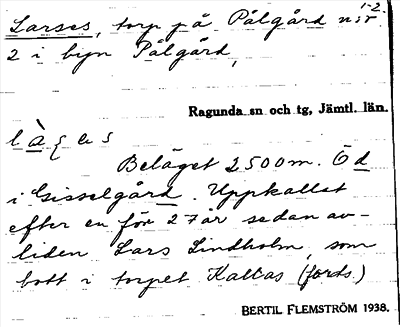 1-2.
Larses, torp på Pålgård n:r
2 i byn Pålgård,
Ragunda sn och tg, Jämtl. län.
Beläget 2500 m. Ö d
i Gisselgård. Uppkallat
efter en för 27 år sedan av-
liden Lars Lindholm som
bott i torpet. Kallas (forts.)
BERTIL FLEMSTRÖM 1938.